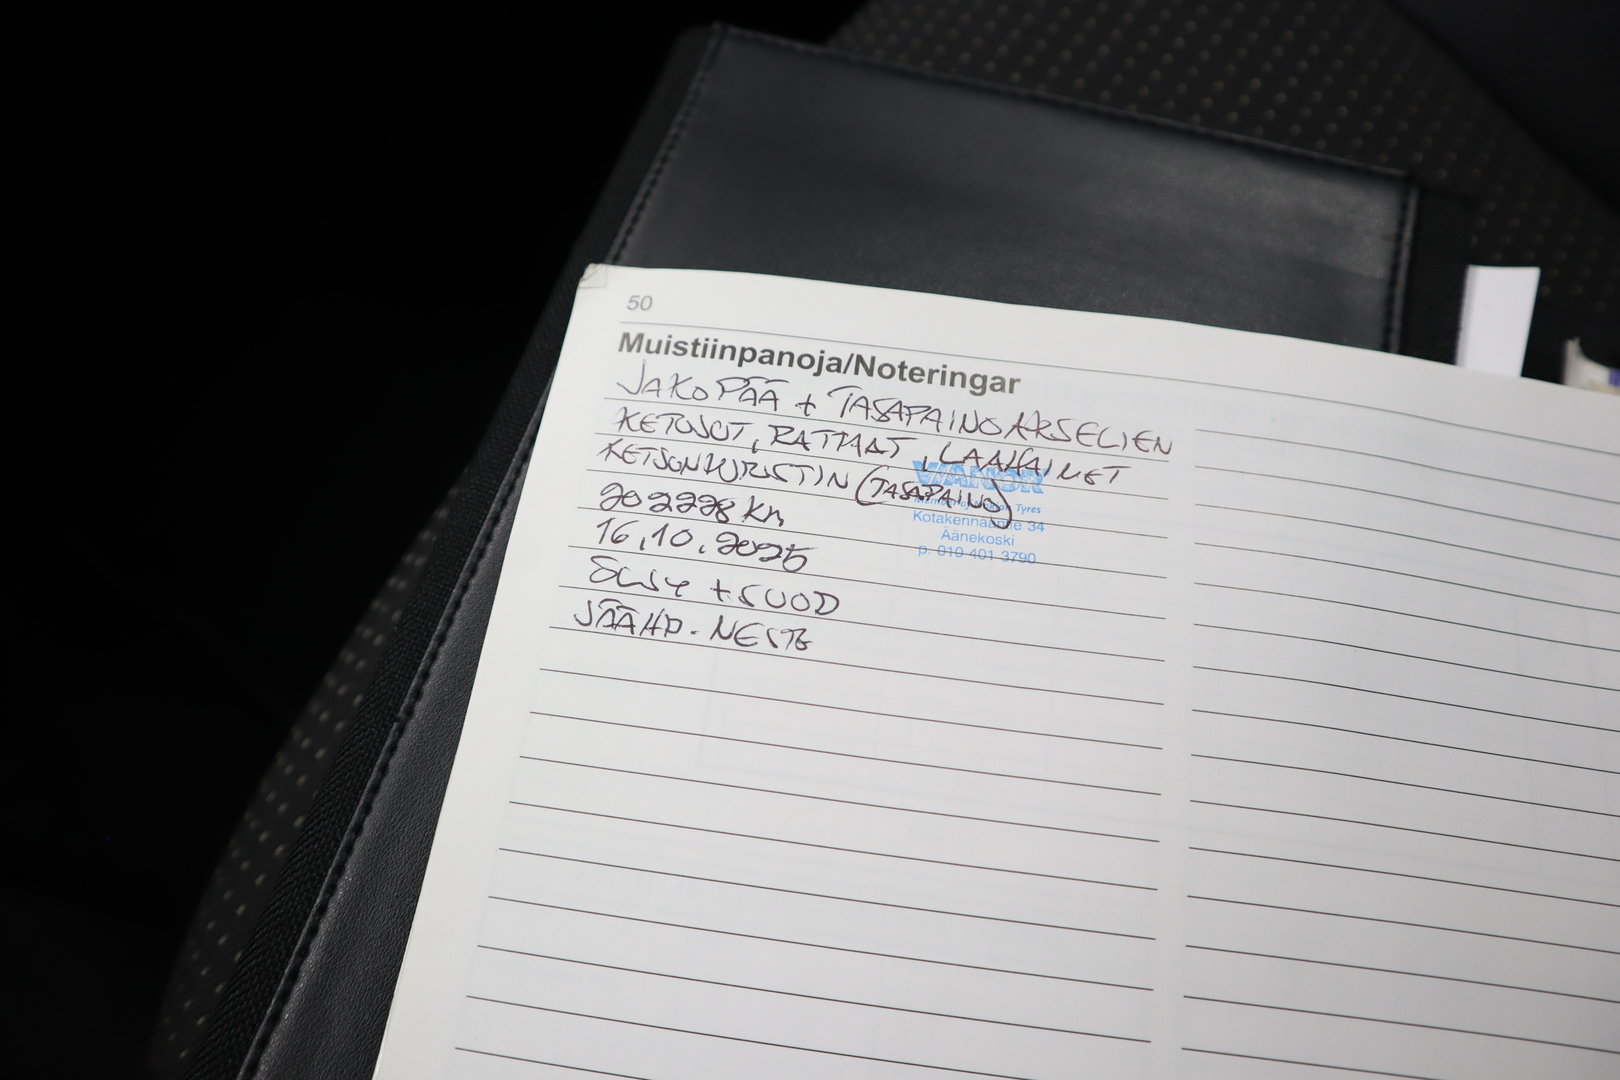 50
Muistiinpanoja/Noteringar
JAKOPÄÄ + TASAPAINOAKSELIEN
KETJUT, RATTAAT, LAAHAIMET
KETJUNKIRISTIN (TASAPAINO)
202228 km
16.10.2025
ÖLJY + SUOD
JÄÄHD. NESTE
VIANOR
Tyres
Kotakennaantie 34
Äänekoski
p. 010 401 3790